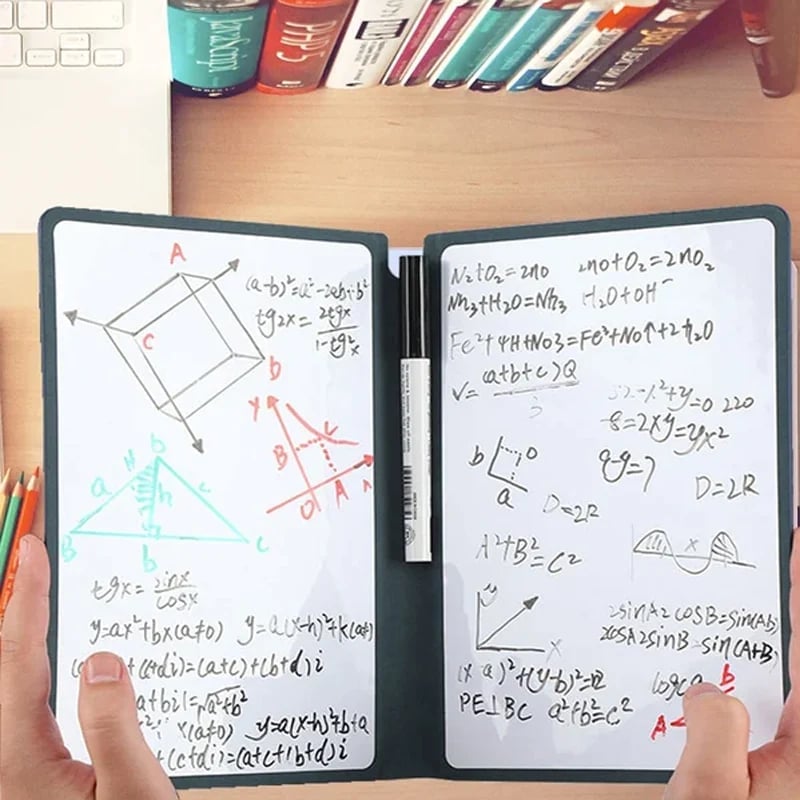 JavaScript
A
(a-b)²=a²-2ab+b²
tg2x=2tgx/1-tg²x
C
D
Y
B
C
O
A
b
H
a
h
c
B
b
C
tgx=sinx/cosx
y=ax²+bx(a≠0) y=a(x-h)²+k(a≠)
+(c+di)=(a+c)+(b+d)i
a+bi|=√a²+b²
x(a≠0) y=a(x-h)²+b+a
+(c+di)=(a+c+1b+d)i
N₂+O₂=2no 2no+O₂=2nO₂
Nh₃+H₂O=Nh₃ H₂O+OH⁻
Fe²+4H+No3=Fe³+No↑+2h₂O
V=(a+b+c)Q/3
-x²+y=0 220
-8=2xy=yx²
b
o
a
D=2R
D=2R
A²+B²=C²
x
y
x
2sinA2cosB=sin(Ab)
2cosA2sinB=sin(A+B)
(x-a)²+(y-b)²=12
PE⊥BC a²+b²=c²
b
A